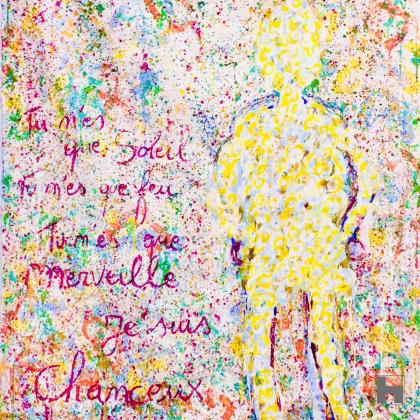 Tu m'es
que Soleil
Tu m'es que feu
Tu m'es que
merveille
Je suis
Chanceux